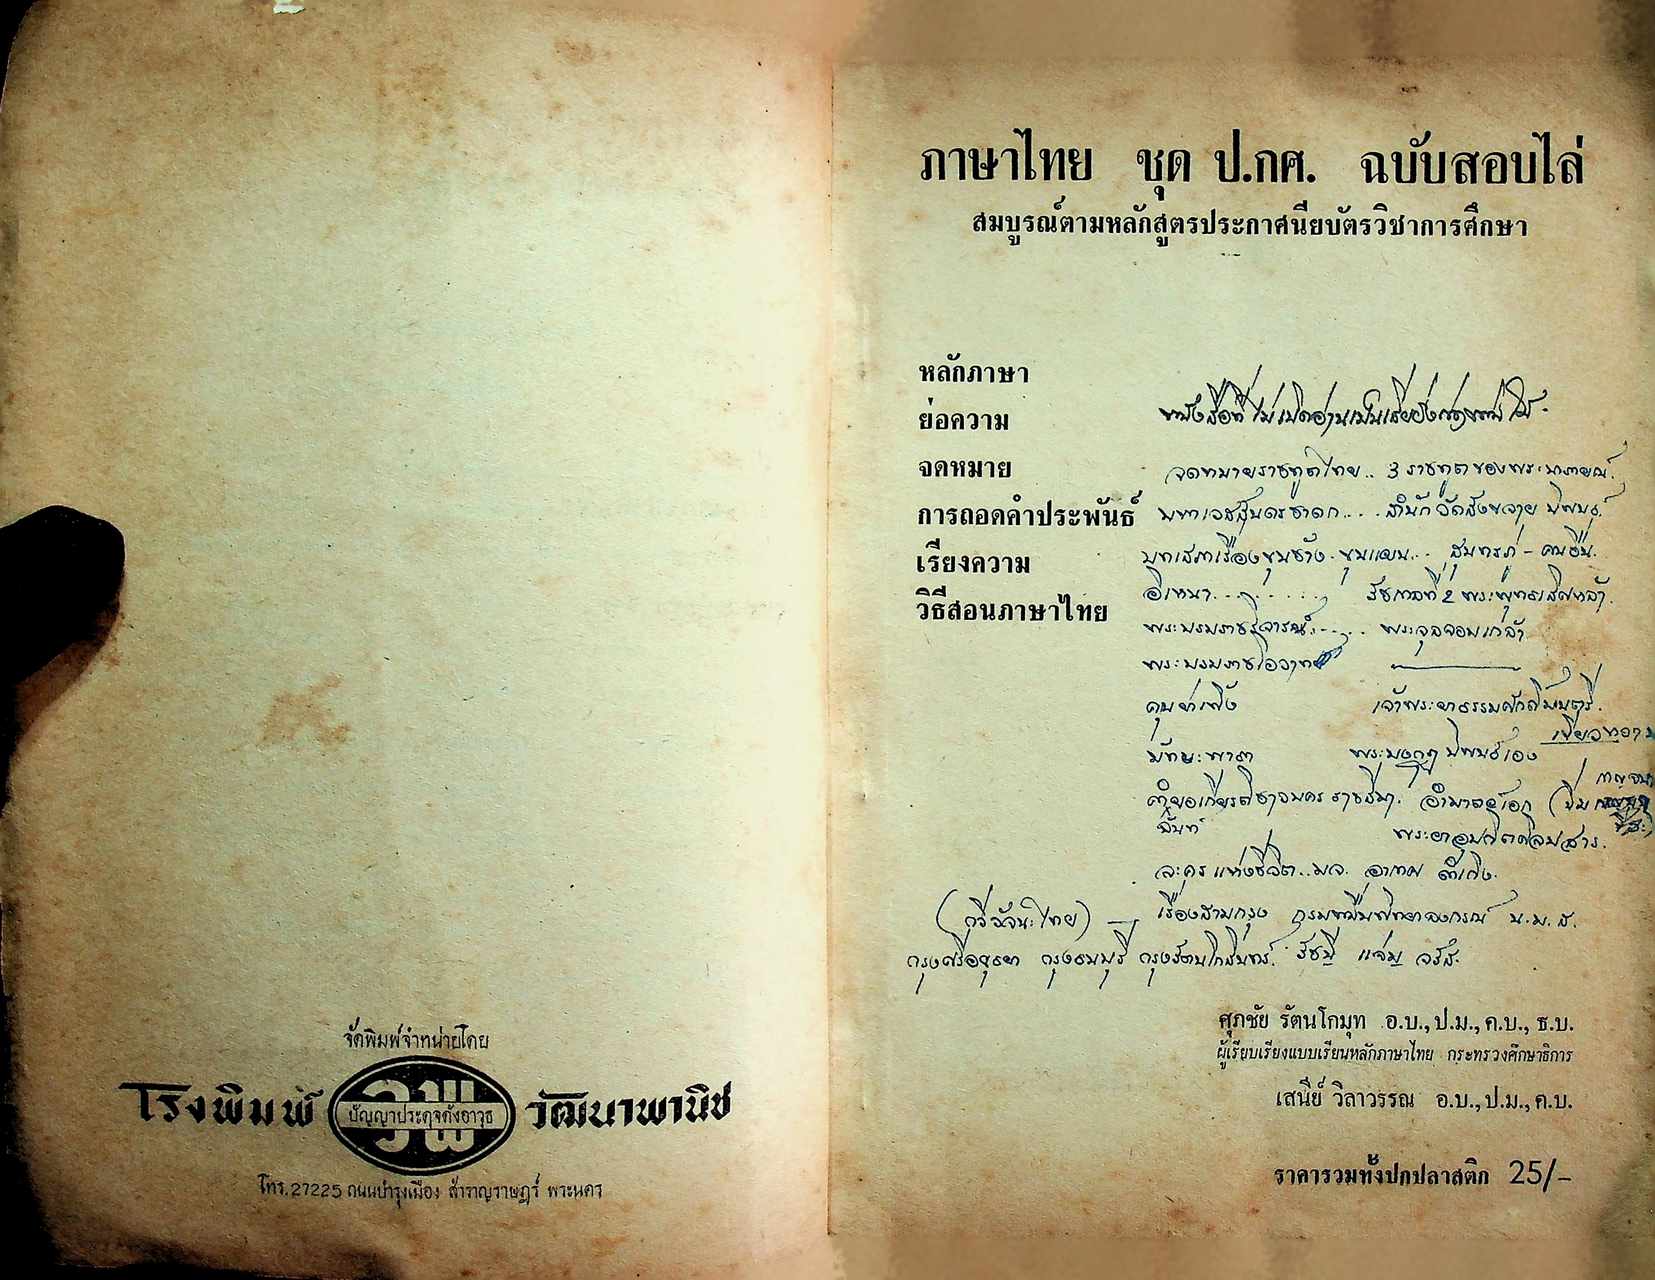 จัดพิมพ์จำหน่ายโดย
โรงพิมพ์ วพ วัฒนาพานิช
ปัญญาประดุจดังอาวุธ
โทร.27225 ถนนบำรุงเมือง สำราญราษฎร์ พระนคร
ภาษาไทย ชุด ป.กศ. ฉบับสอบไล่
สมบูรณ์ตามหลักสูตรประกาศนียบัตรวิชาการศึกษา
หลักภาษา
ย่อความ
จดหมาย
การถอดคำประพันธ์
เรียงความ
วิธีสอนภาษาไทย
หนังสือที่ไม่เปิดอ่านเป็นเสีย
จดหมายราชทูตไทย.. 3 ราชทูตของพระนารายณ์.
มหาเวสสันดรชาดก.... สำนักวัดสังขจาย นิพนธ์.
บทเสภาเรื่องขุนช้าง-ขุนแผน... สุนทรภู่ - คนอื่น.
อิเหนา......... รัชกาลที่ 2 พระพุทธเลิศหล้า.
พระบรมราชวิจารณ์...... พระจุลจอมเกล้า
พระบรมราโชวาท
คุณย่าเพิ้ง เจ้าพระยาธรรมศักดิ์มนตรี.
มัทนะพาธา พระมงกุฎ นิพนธ์เอง
นครราชสีมา. อำมาตย์เอก
ละครแห่งชีวิต.. มจ. อากาศ ดำเกิง.
(กวีวัจนะไทย) — เรื่องสามกรุง กรมหมื่นพิทยาลงกรณ์ น.ม.ส.
กรุงศรีอยุธยา กรุงธนบุรี กรุงรัตนโกสินทร์. รัชนี แจ่ม จรัส.
ศุภชัย รัตนโกมุท อ.บ.,ป.ม.,ค.บ.,ธ.บ.
ผู้เรียบเรียงแบบเรียนหลักภาษาไทย กระทรวงศึกษาธิการ
เสนีย์ วิลาวรรณ อ.บ.,ป.ม.,ค.บ.
ราคารวมทั้งปกปลาสติก 25/-